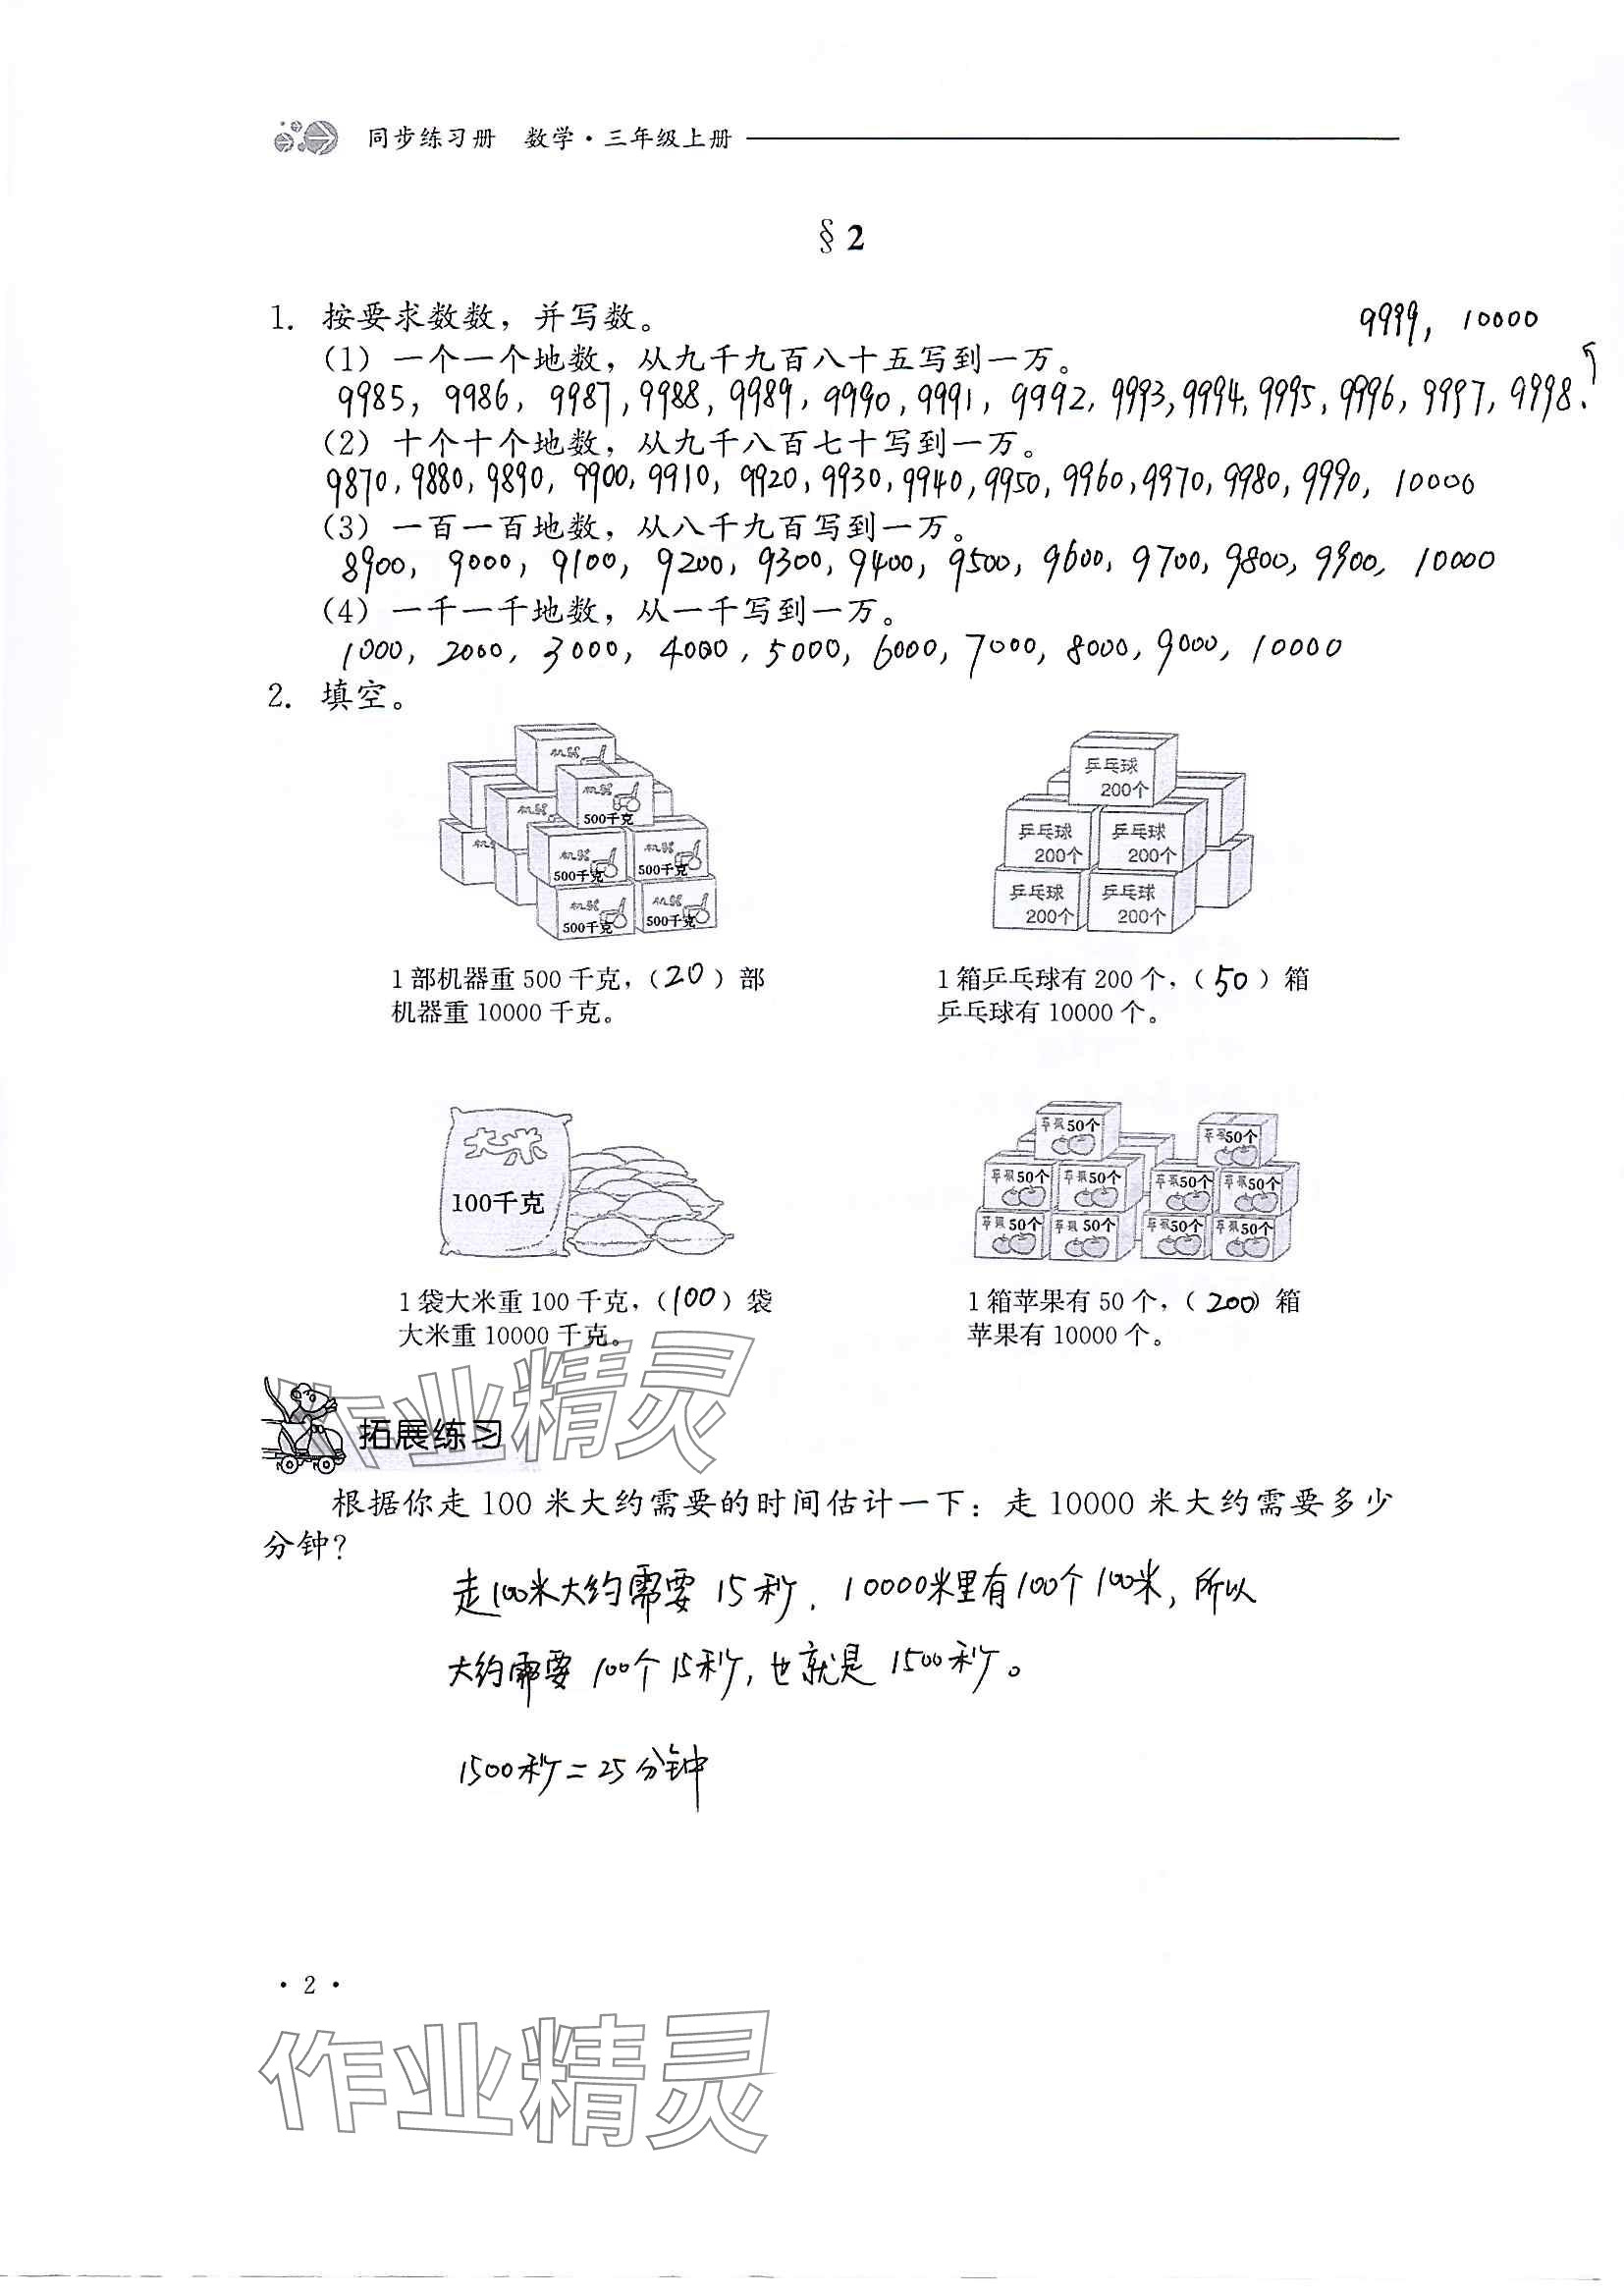 同步练习册 数学·三年级上册
§2
1. 按要求数数，并写数。
9999, 10000
(1) 一个一个地数，从九千九百八十五写到一万。
9985, 9986, 9987, 9988, 9989, 9990, 9991, 9992, 9993, 9994, 9995, 9996, 9997, 9998,
(2) 十个十个地数，从九千八百七十写到一万。
9870, 9880, 9890, 9900, 9910, 9920, 9930, 9940, 9950, 9960, 9970, 9980, 9990, 10000
(3) 一百一百地数，从八千九百写到一万。
8900, 9000, 9100, 9200, 9300, 9400, 9500, 9600, 9700, 9800, 9900, 10000
(4) 一千一千地数，从一千写到一万。
1000, 2000, 3000, 4000, 5000, 6000, 7000, 8000, 9000, 10000
2. 填空。
机器
机器
500千克
机器
机器
机器
500千克
500千克
机器
机器
500千克
500千克
乒乓球
200个
乒乓球
200个
乒乓球
200个
乒乓球
200个
乒乓球
200个
1部机器重500千克，（20）部
机器重10000千克。
1箱乒乓球有200个，（50）箱
乒乓球有10000个。
大米
100千克
苹果50个
苹果50个
苹果50个
苹果50个
苹果50个
苹果50个
苹果50个
苹果50个
苹果50个
苹果50个
1袋大米重100千克，（100）袋
大米重10000千克。
1箱苹果有50个，（200）箱
苹果有10000个。
作业精灵
拓展练习
根据你走100米大约需要的时间估计一下：走10000米大约需要多少
分钟？
走100米大约需要15秒，10000米里有100个100米，所以
大约需要100个15秒，也就是1500秒。
1500秒=25分钟
·2·
作业精灵